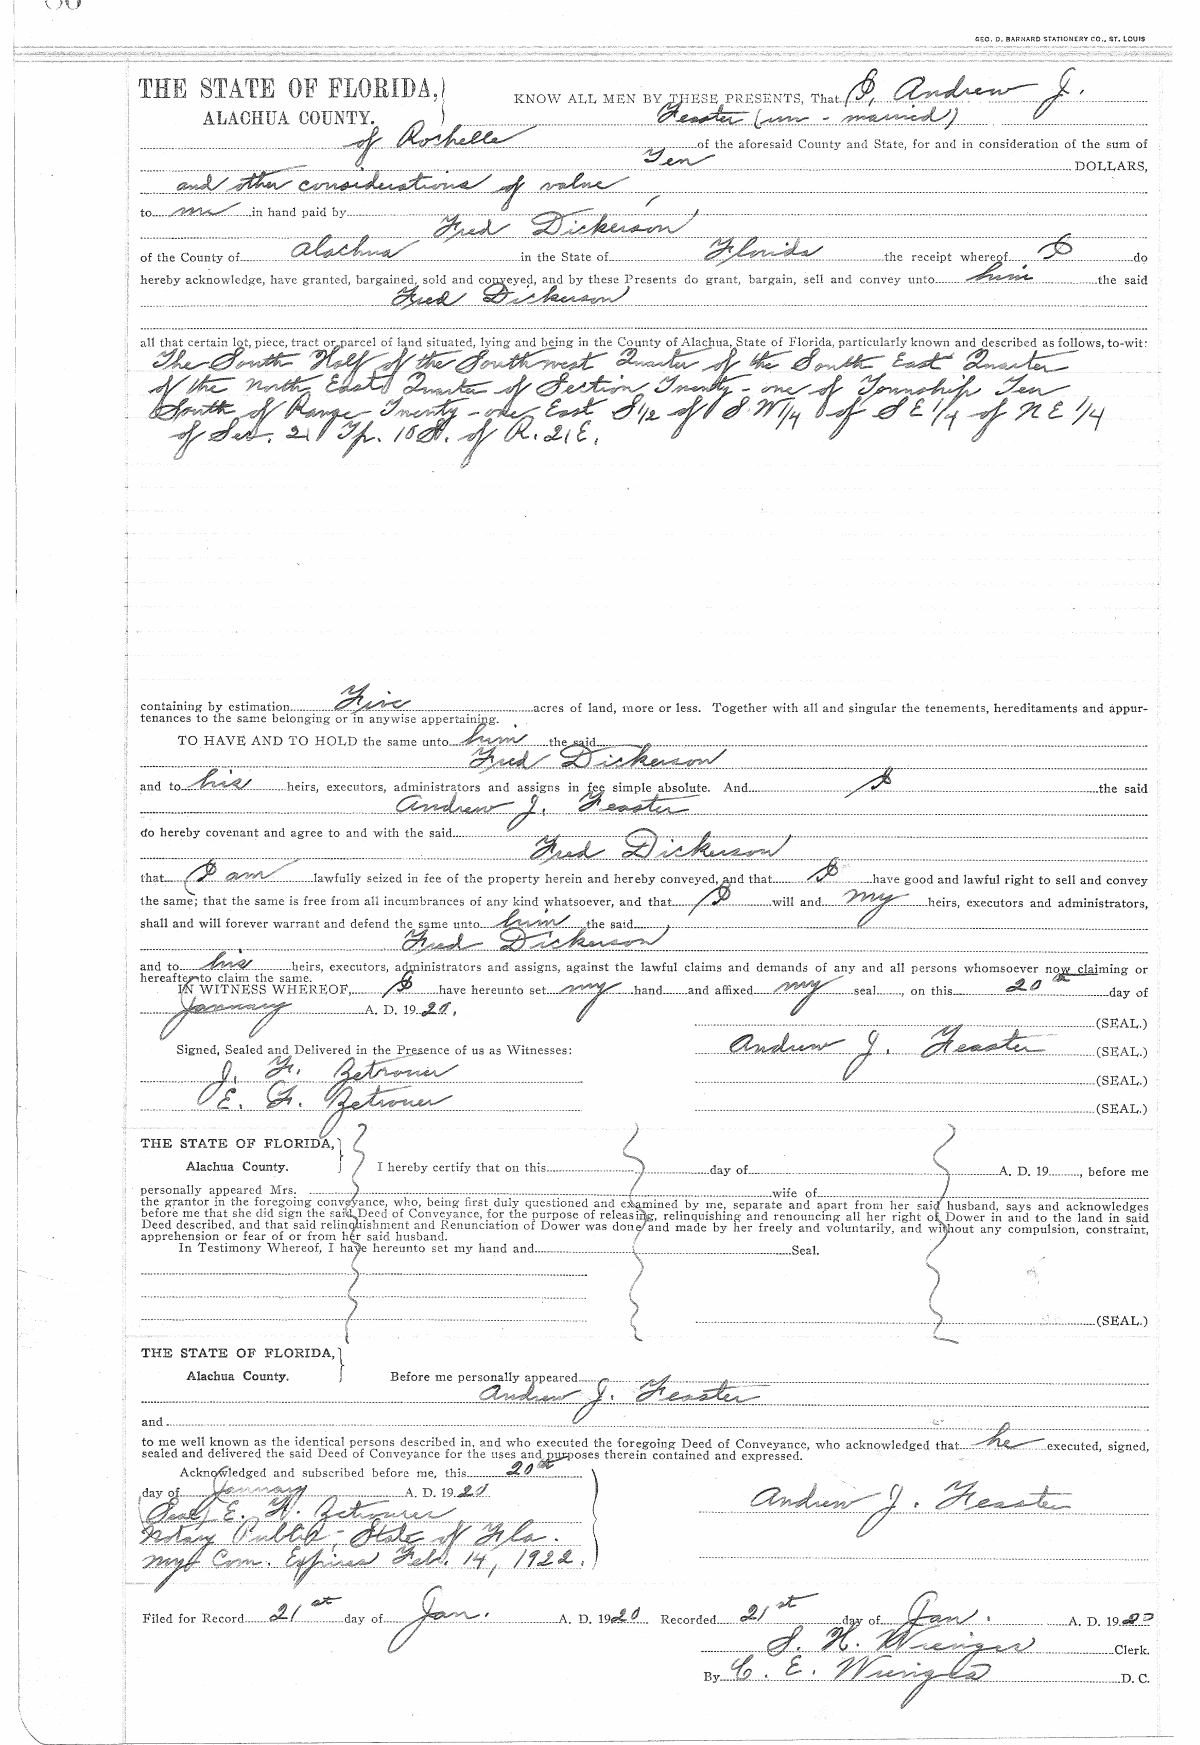 GEO. D. BARNARD STATIONERY CO., ST. LOUIS
THE STATE OF FLORIDA,
ALACHUA COUNTY.
KNOW ALL MEN BY THESE PRESENTS, That I, Andrew J.
Feaster (un-married)
of Rochelle of the aforesaid County and State, for and in consideration of the sum of
Ten DOLLARS,
and other considerations of value,
to me in hand paid by
Fred Dickerson,
of the County of Alachua in the State of Florida the receipt whereof I do
hereby acknowledge, have granted, bargained, sold and conveyed, and by these Presents do grant, bargain, sell and convey unto him the said
Fred Dickerson
all that certain lot, piece, tract or parcel of land situated, lying and being in the County of Alachua, State of Florida, particularly known and described as follows, to-wit:
The South Half of the Southwest Quarter of the South East Quarter
of the North East Quarter of Section Twenty-one of Township Ten
South of Range Twenty-one East S 1/2 of S W 1/4 of S E 1/4 of N E 1/4
of Sec. 21 Tp. 10 S. of R. 21 E.
containing by estimation Five acres of land, more or less. Together with all and singular the tenements, hereditaments and appur-
tenances to the same belonging or in anywise appertaining.
TO HAVE AND TO HOLD the same unto him the said
Fred Dickerson
and to his heirs, executors, administrators and assigns in fee simple absolute. And I the said
Andrew J. Feaster
do hereby covenant and agree to and with the said
Fred Dickerson
that I am lawfully seized in fee of the property herein and hereby conveyed, and that I have good and lawful right to sell and convey
the same; that the same is free from all incumbrances of any kind whatsoever, and that I will and my heirs, executors and administrators,
shall and will forever warrant and defend the same unto him the said
Fred Dickerson,
and to his heirs, executors, administrators and assigns, against the lawful claims and demands of any and all persons whomsoever now claiming or
hereafter to claim the same.
IN WITNESS WHEREOF, I have hereunto set my hand and affixed my seal, on this 20th day of
January A. D. 1920.
(SEAL.)
Signed, Sealed and Delivered in the Presence of us as Witnesses:
Andrew J. Feaster (SEAL.)
(SEAL.)
(SEAL.)
THE STATE OF FLORIDA,
Alachua County. I hereby certify that on this day of A. D. 19 , before me
personally appeared Mrs. wife of
the grantor in the foregoing conveyance, who, being first duly questioned and examined by me, separate and apart from her said husband, says and acknowledges
before me that she did sign the said Deed of Conveyance, for the purpose of releasing, relinquishing and renouncing all her right of Dower in and to the land in said
Deed described, and that said relinquishment and Renunciation of Dower was done and made by her freely and voluntarily, and without any compulsion, constraint,
apprehension or fear of or from her said husband.
In Testimony Whereof, I have hereunto set my hand and Seal.
(SEAL.)
THE STATE OF FLORIDA,
Alachua County. Before me personally appeared
Andrew J. Feaster
and
to me well known as the identical persons described in, and who executed the foregoing Deed of Conveyance, who acknowledged that he executed, signed,
sealed and delivered the said Deed of Conveyance for the uses and purposes therein contained and expressed.
Acknowledged and subscribed before me, this 20th
day of January A. D. 1920
Andrew J. Feaster
(Seal)
Notary Public, State of Fla.
my Com. Expires Feb. 14, 1922.
Filed for Record 21st day of Jan. A. D. 1920 Recorded 21st day of Jan. A. D. 1920
S. H. Wienges Clerk.
By C. E. Wienges D. C.